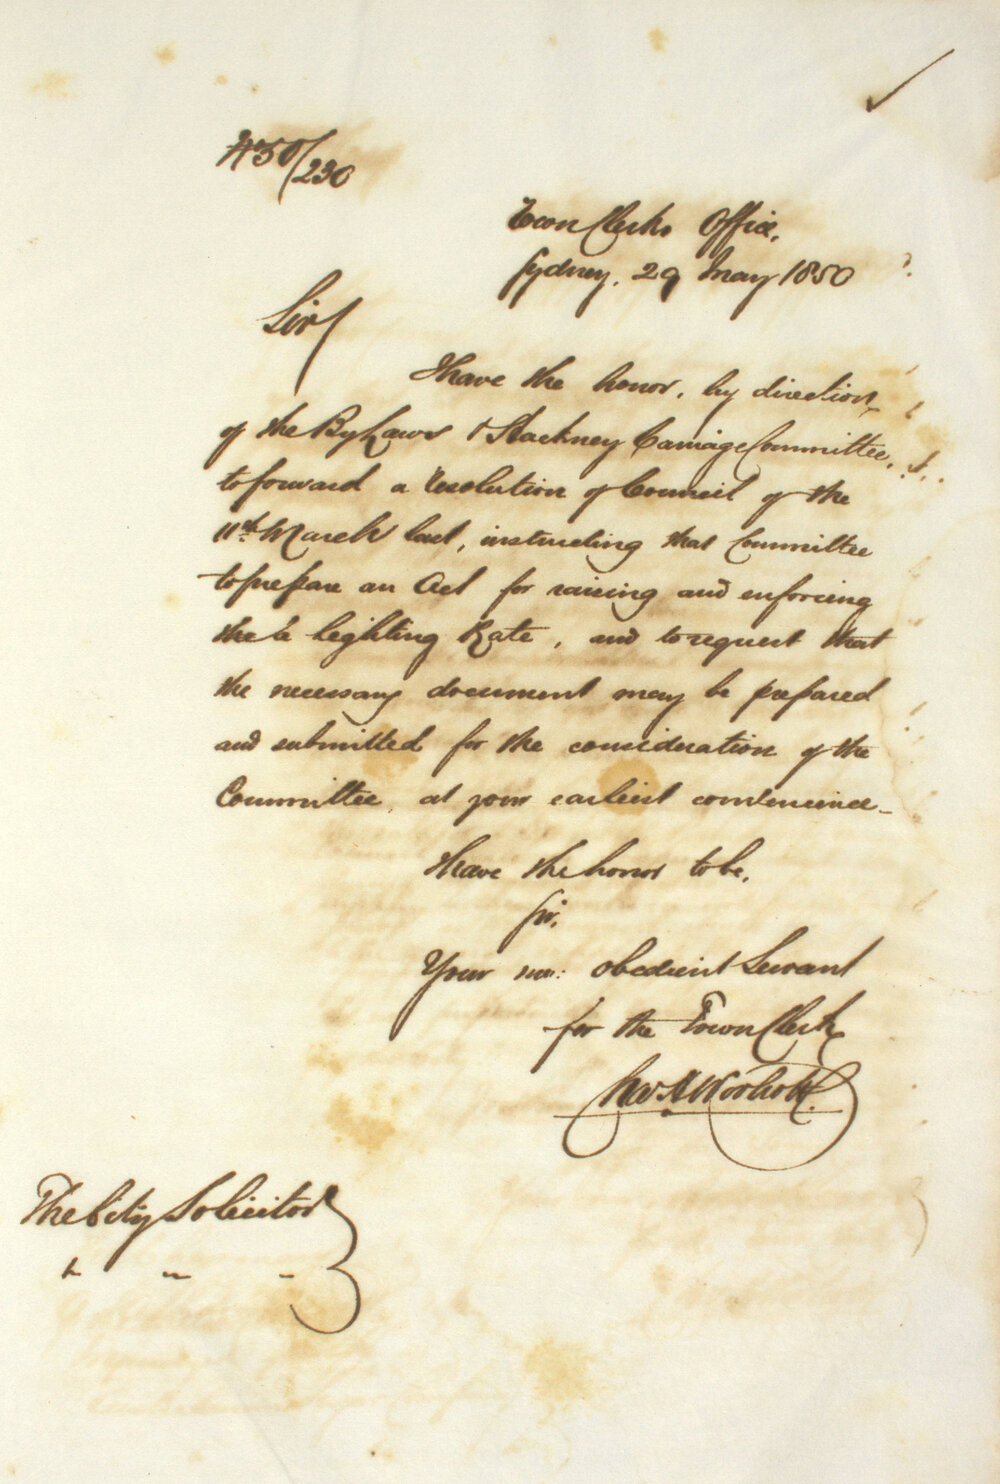 No 50/230
Town Clerks Office,
Sydney, 29 May 1850
Sir
I have the honor, by direction
of the By Laws & Hackney Carriage Committee,
to forward a Resolution of Council of the
11th March last, instructing that Committee
to prepare an Act for raising and enforcing
the Lighting Rate, and to request that
the necessary document may be prepared
and submitted for the consideration of the
Committee, at your earliest convenience_
I have the honor to be,
Sir,
Your obedient Servant
for the Town Clerk
The City Solicitor